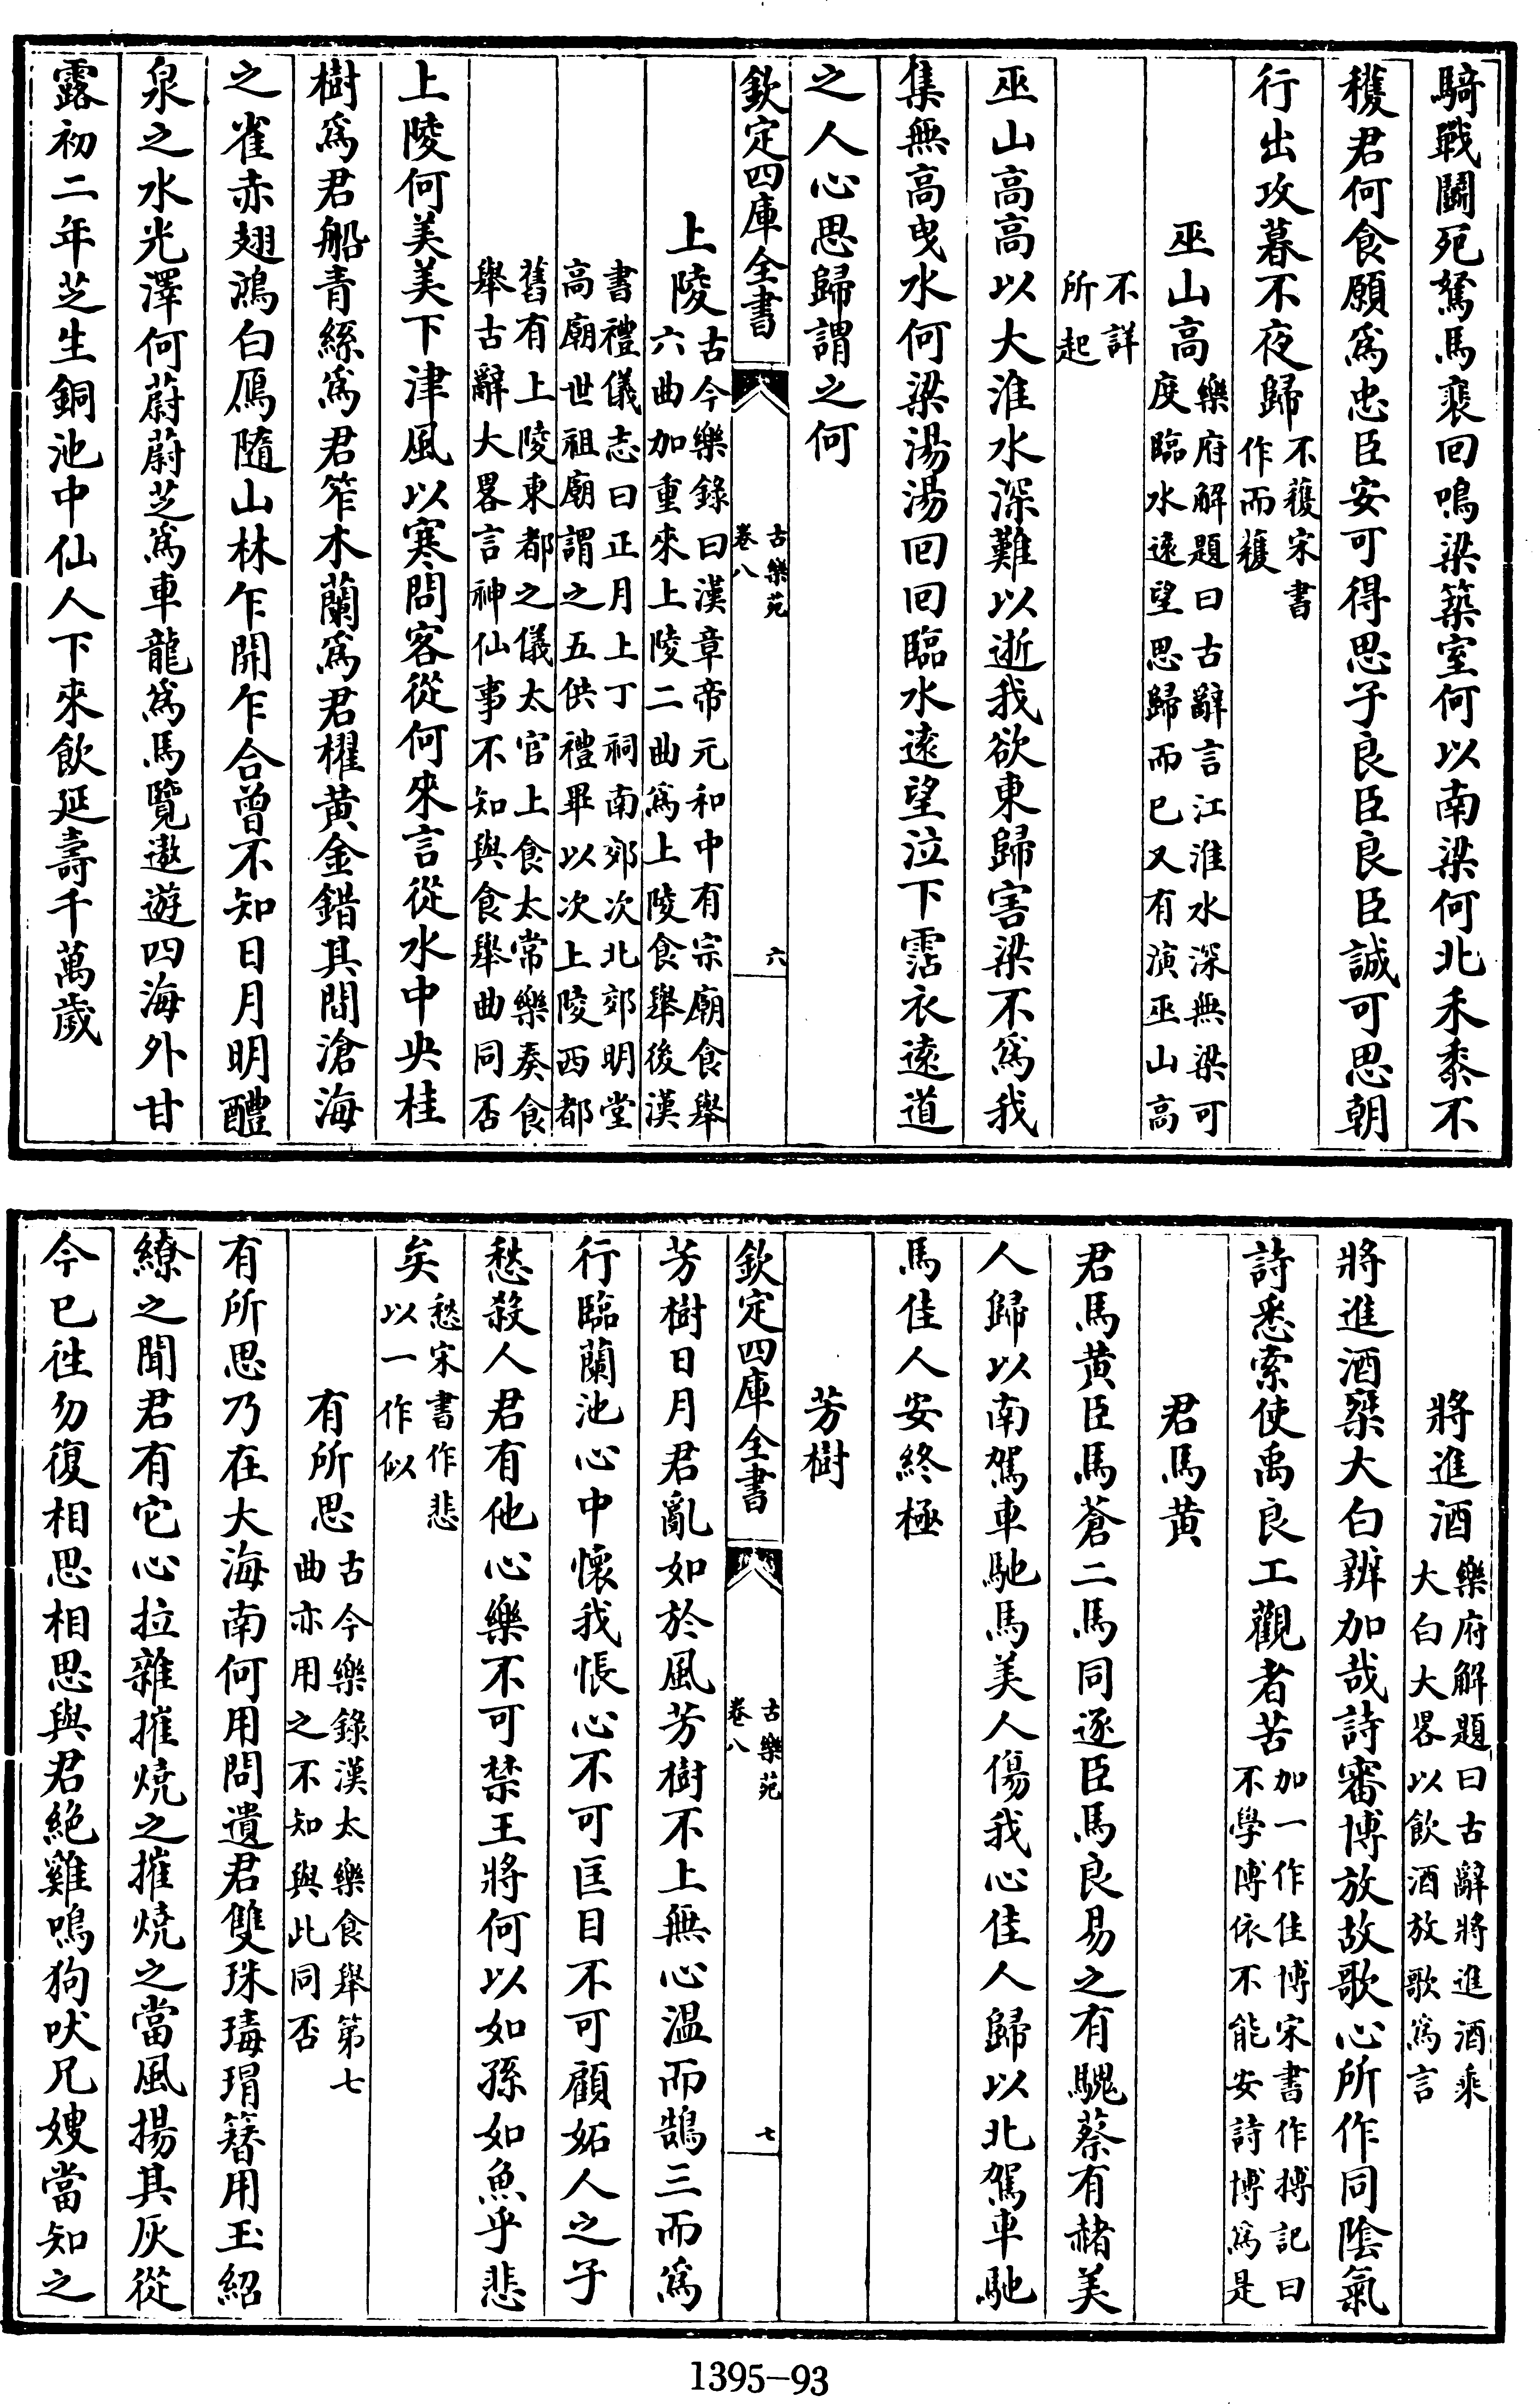 騎戰鬭死駑馬裴回鳴梁築室何以南梁何北禾黍不
穫君何食願爲忠臣安可得思子良臣良臣誠可思朝
行出攻暮不夜歸不穫宋書作而穫
巫山高樂府解題曰古辭言江淮水深無梁可度臨水遠望思歸而已又有演巫山高
不詳所起
巫山高高以大淮水深難以逝我欲東歸害梁不爲我
集無高曳水何梁湯湯回回臨水遠望泣下霑衣遠道
之人心思歸謂之何
欽定四庫全書 古樂苑 卷八 六
上陵古今樂錄曰漢章帝元和中有宗廟食舉六曲加重來上陵二曲爲上陵食舉後漢
書禮儀志曰正月上丁祠南郊次北郊明堂高廟世祖廟謂之五供禮畢以次上陵西都
舊有上陵東都之儀太官上食太常樂奏食舉古辭大畧言神仙事不知與食舉曲同否
上陵何美美下津風以寒問客從何來言從水中央桂
樹爲君船青絲爲君笮木蘭爲君櫂黄金錯其間滄海
之雀赤翅鴻白鴈隨山林乍開乍合曾不知日月明醴
泉之水光澤何蔚蔚芝爲車龍爲馬覽遨遊四海外甘
露初二年芝生銅池中仙人下來飲延壽千萬歲
將進酒樂府解題曰古辭將進酒乘大白大畧以飲酒放歌爲言
將進酒椉大白辨加哉詩審博放故歌心所作同陰氣
詩悉索使禹良工觀者苦加一作佳博宋書作搏記曰不學博依不能安詩博爲是
君馬黄
君馬黄臣馬蒼二馬同逐臣馬良易之有騩蔡有赭美
人歸以南駕車馳馬美人傷我心佳人歸以北駕車馳
馬佳人安終極
芳樹
欽定四庫全書 古樂苑 卷八 七
芳樹日月君亂如於風芳樹不上無心温而鵠三而爲
行臨蘭池心中懷我悵心不可匡目不可顧妬人之子
愁殺人君有他心樂不可禁王將何以如孫如魚乎悲
矣愁宋書作悲以一作似
有所思古今樂錄漢太樂食舉第七曲亦用之不知與此同否
有所思乃在大海南何用問遺君雙珠瑇瑁簪用玉紹
繚之聞君有它心拉雜摧燒之摧燒之當風揚其灰從
今已往勿復相思相思與君絶雞鳴狗吠兄嫂當知之
1395-93